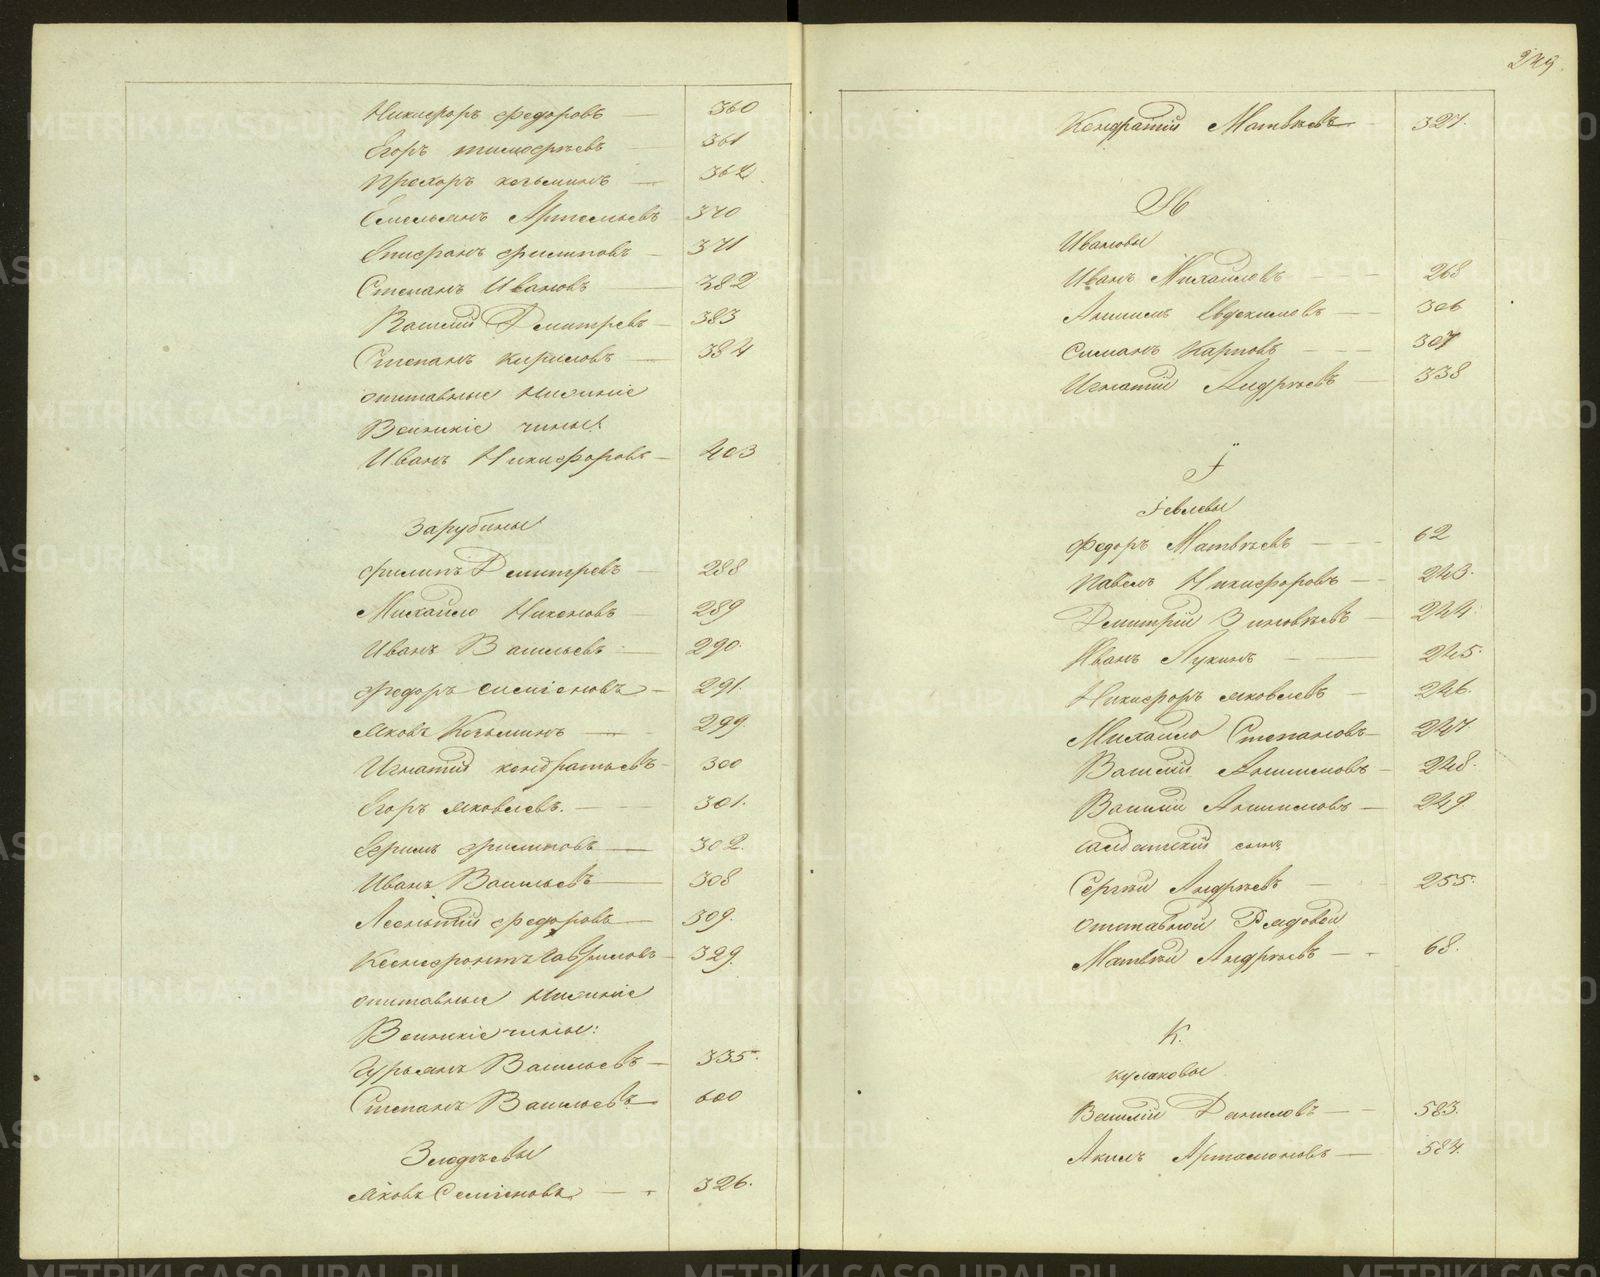 Никифоръ Федоровъ — 360
Егоръ Тимофѣевъ — 361
Прохоръ Козьминъ — 362
Емельянъ Артемьевъ 370
Епифанъ Филиповъ — 371
Степанъ Ивановъ — 382
Василій Дмитревъ — 383
Степанъ Кириловъ — 384
отставные Нижніе
Воинскіе чины:
Иванъ Никифоровъ — 403
Зарубины
Филипъ Дмитревъ — 288
Михайло Никоновъ — 289
Иванъ Васильевъ — 290.
Федоръ Симіоновъ — 291.
Яковъ Козьминъ — 299.
Игнатій Кондратьевъ — 300
Егоръ Яковлевъ. — 301.
Ефимъ Филиповъ — 302.
Иванъ Васильевъ — 308
Леонтій Федоровъ — 309.
Ксенофонтъ Гавриловъ — 329.
отставные Нижніе
Воинскіе чины:
Гурьянъ Васильевъ — 335.
Степанъ Васильевъ — 600
Злодѣевы
Яковъ Семіоновъ — 326.
249.
Кондратій Матвѣевъ — 327.
И
Ивановы
Иванъ Михайловъ — 268
Анисимъ Евдокимовъ — 306
Симанъ Карповъ — 307
Игнатій Андрѣевъ — 338
Ї
Іевлевы
Федоръ Матвѣевъ — 62
Павелъ Никифоровъ — 243.
Дмитрій Зиновѣевъ — 244.
Иванъ Лукинъ — 245.
Никифоръ Яковлевъ — 246.
Михайло Степановъ — 247
Василій Анисимовъ — 248.
Василій Анисимовъ — 249.
Салдатскій сынъ
Сергѣй Андрѣевъ — 255.
отставной Рядовой
Матвѣй Андрѣевъ — 68.
К.
Кулаковы
Василій Даниловъ — 583.
Акимъ Артамоновъ — 584.
METRIKI.GASO-URAL.RU